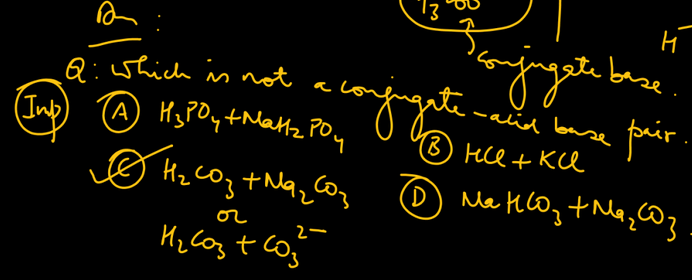 Ans :
conjugate base.
H⁻
Q: which is not a conjugate-acid base pair.
Imp
(A) H₃PO₄+NaH₂PO₄
(B) HCl + KCl
(C) H₂CO₃ + Na₂CO₃
or
H₂CO₃ + CO₃²⁻
(D) NaHCO₃ + Na₂CO₃